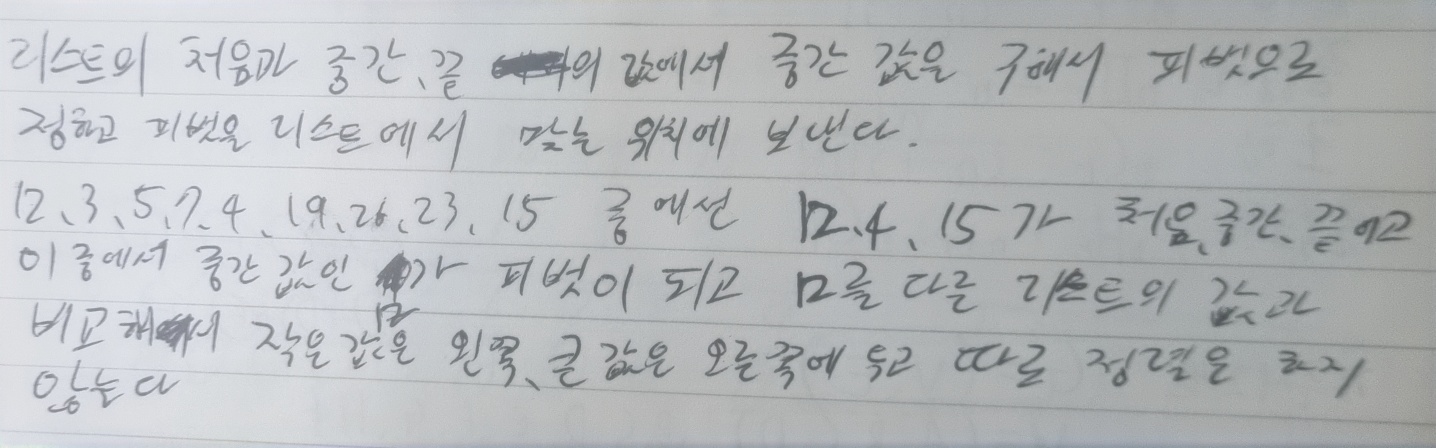 리스트의 처음과 중간, 끝의 값에서 중간 값을 구해서 피벗으로
정하고 피벗을 리스트에서 맞는 위치에 보낸다.
12, 3, 5, 7, 4, 19, 26, 23, 15 중에선 12, 4, 15가 처음, 중간, 끝이고
이 중에서 중간 값인 12가 피벗이 되고 12를 다른 리스트의 값과
비교해서 작은 값은 왼쪽, 큰 값은 오른쪽에 두고 따로 정렬은 하지
않는다